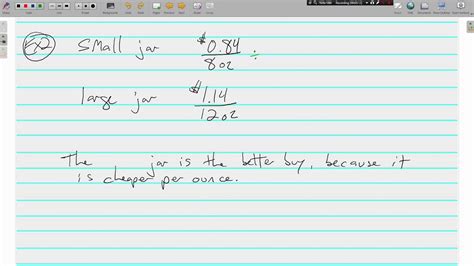 Ex2 small jar $0.84 ÷
8oz
large jar $1.14
12oz
The jar is the better buy, because it
is cheaper per ounce.